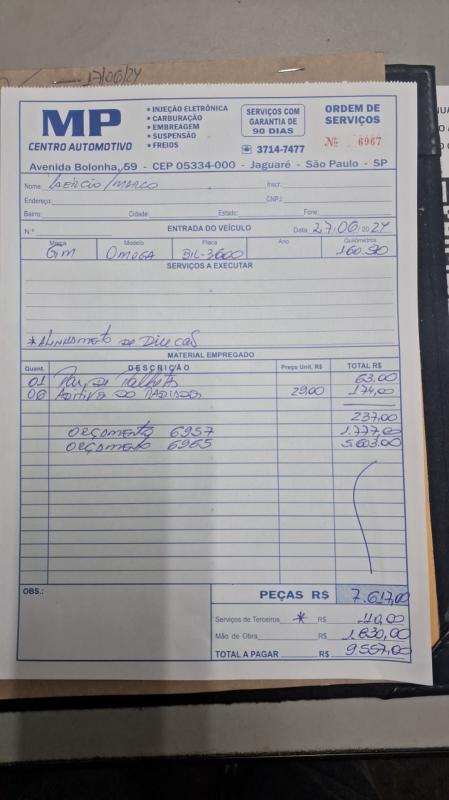 17/06/24
MP
CENTRO AUTOMOTIVO
• INJEÇÃO ELETRÔNICA
• CARBURAÇÃO
• EMBREAGEM
• SUSPENSÃO
• FREIOS
SERVIÇOS COM
GARANTIA DE
90 DIAS
☎ 3714-7477
ORDEM DE
SERVIÇOS
Nº 6967
Avenida Bolonha, 59 - CEP 05334-000 - Jaguaré - São Paulo - SP
Nome: Laércio/Marco Inscr.
Endereço: CNPJ
Bairro: Cidade: Estado: Fone:
N.º ENTRADA DO VEÍCULO Data 27/06/2024
Marca Modelo Placa Ano Quilômetros
GM OMEGA BIL-3600
SERVIÇOS A EXECUTAR
*ALINHAMENTO DE
MATERIAL EMPREGADO
Quant. DESCRIÇÃO Preço Unit. R$ TOTAL R$
01 Par de Palheta 63,00
06 ADITIVO DO 29,00 174,00
237,00
ORÇAMENTO 6957 1.777,00
ORÇAMENTO 6965 5.603,00
OBS.:
PEÇAS R$ 7.617,00
Serviços de Terceiros * R$ 110,00
Mão de Obra R$ 1.830,00
TOTAL A PAGAR R$ 9.557,00